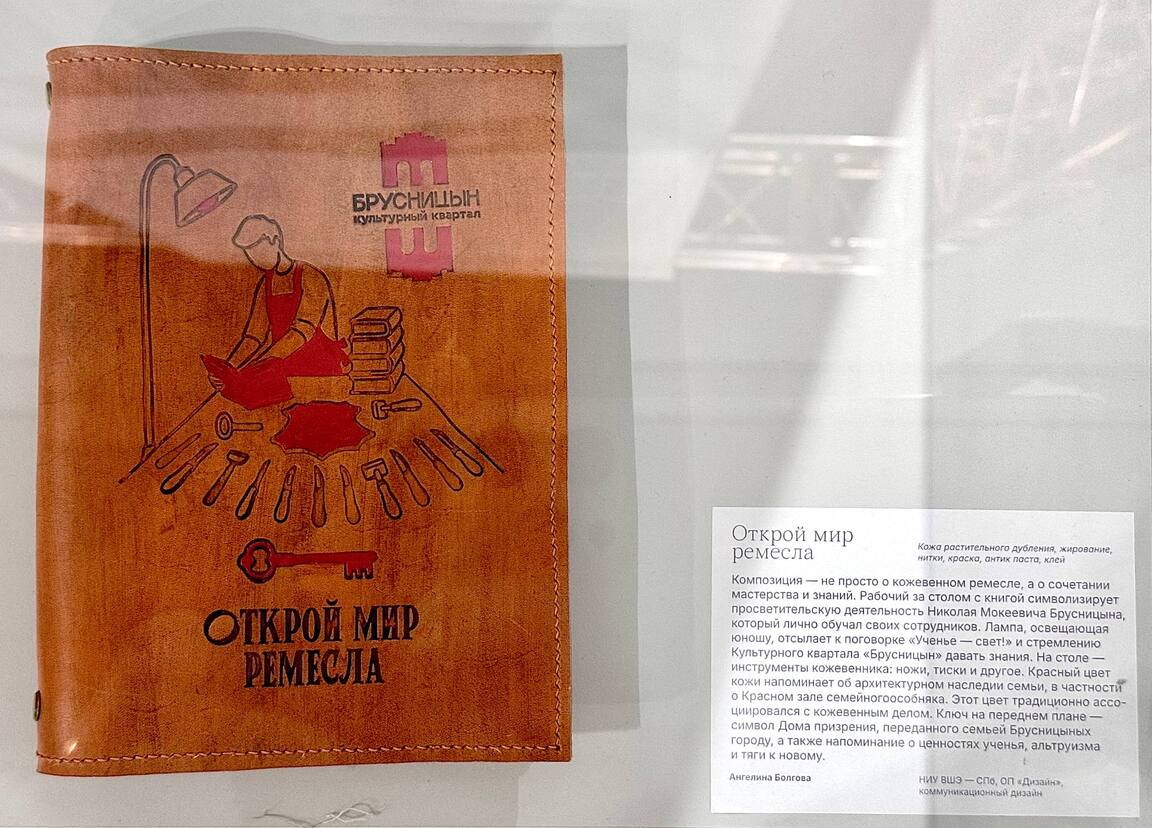 БРУСНИЦЫН
культурный квартал
ОТКРОЙ МИР
РЕМЕСЛА
Открой мир
ремесла
Кожа растительного дубления, жирование,
нитки, краска, антик паста, клей
Композиция — не просто о кожевенном ремесле, а о сочетании
мастерства и знаний. Рабочий за столом с книгой символизирует
просветительскую деятельность Николая Мокеевича Брусницына,
который лично обучал своих сотрудников. Лампа, освещающая
юношу, отсылает к поговорке «Ученье — свет!» и стремлению
Культурного квартала «Брусницын» давать знания. На столе —
инструменты кожевенника: ножи, тиски и другое. Красный цвет
кожи напоминает об архитектурном наследии семьи, в частности
о Красном зале семейногоособняка. Этот цвет традиционно ассо-
циировался с кожевенным делом. Ключ на переднем плане —
символ Дома призрения, переданного семьей Брусницыных
городу, а также напоминание о ценностях ученья, альтруизма
и тяги к новому.
Ангелина Болгова
НИУ ВШЭ — СПб, ОП «Дизайн»,
коммуникационный дизайн